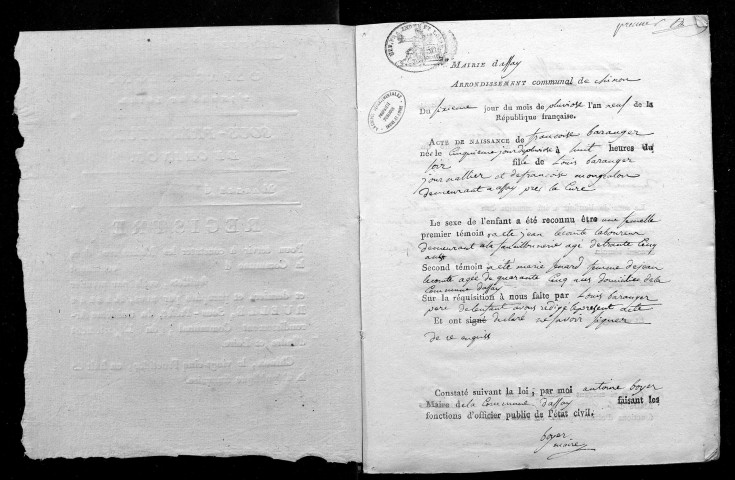 Mairie dassay
Arrondissement communal de chinon
Du sixieme jour du mois de pluviose l'an neuf de la
République française.
Acte de naissance de francoise baranger
née le cinquieme jour de pluviose à huit heures du
soir fille de Louis baranger
journallier et de francoise
demeurant a assay pres la Cure
Le sexe de l'enfant a été reconnu être une femelle
premier témoin a eté jean lecomte laboureur
demeurant a la agé de trante cinq
ans
Second témoin a eté marie femme de jean
lecomte agée de quarante cinq ans domiciliés de la
Commune dassay
Sur la réquisition à nous faite par Louis baranger
pere de lenfant avons rédigé le present acte
Et ont signé declaré ne savoir signer
de ce enquis
Constaté suivant la loi, par moi antoine boyer
Maire de la Commune dassay faisant les
fonctions d'officier public de l'état civil.
boyer
maire